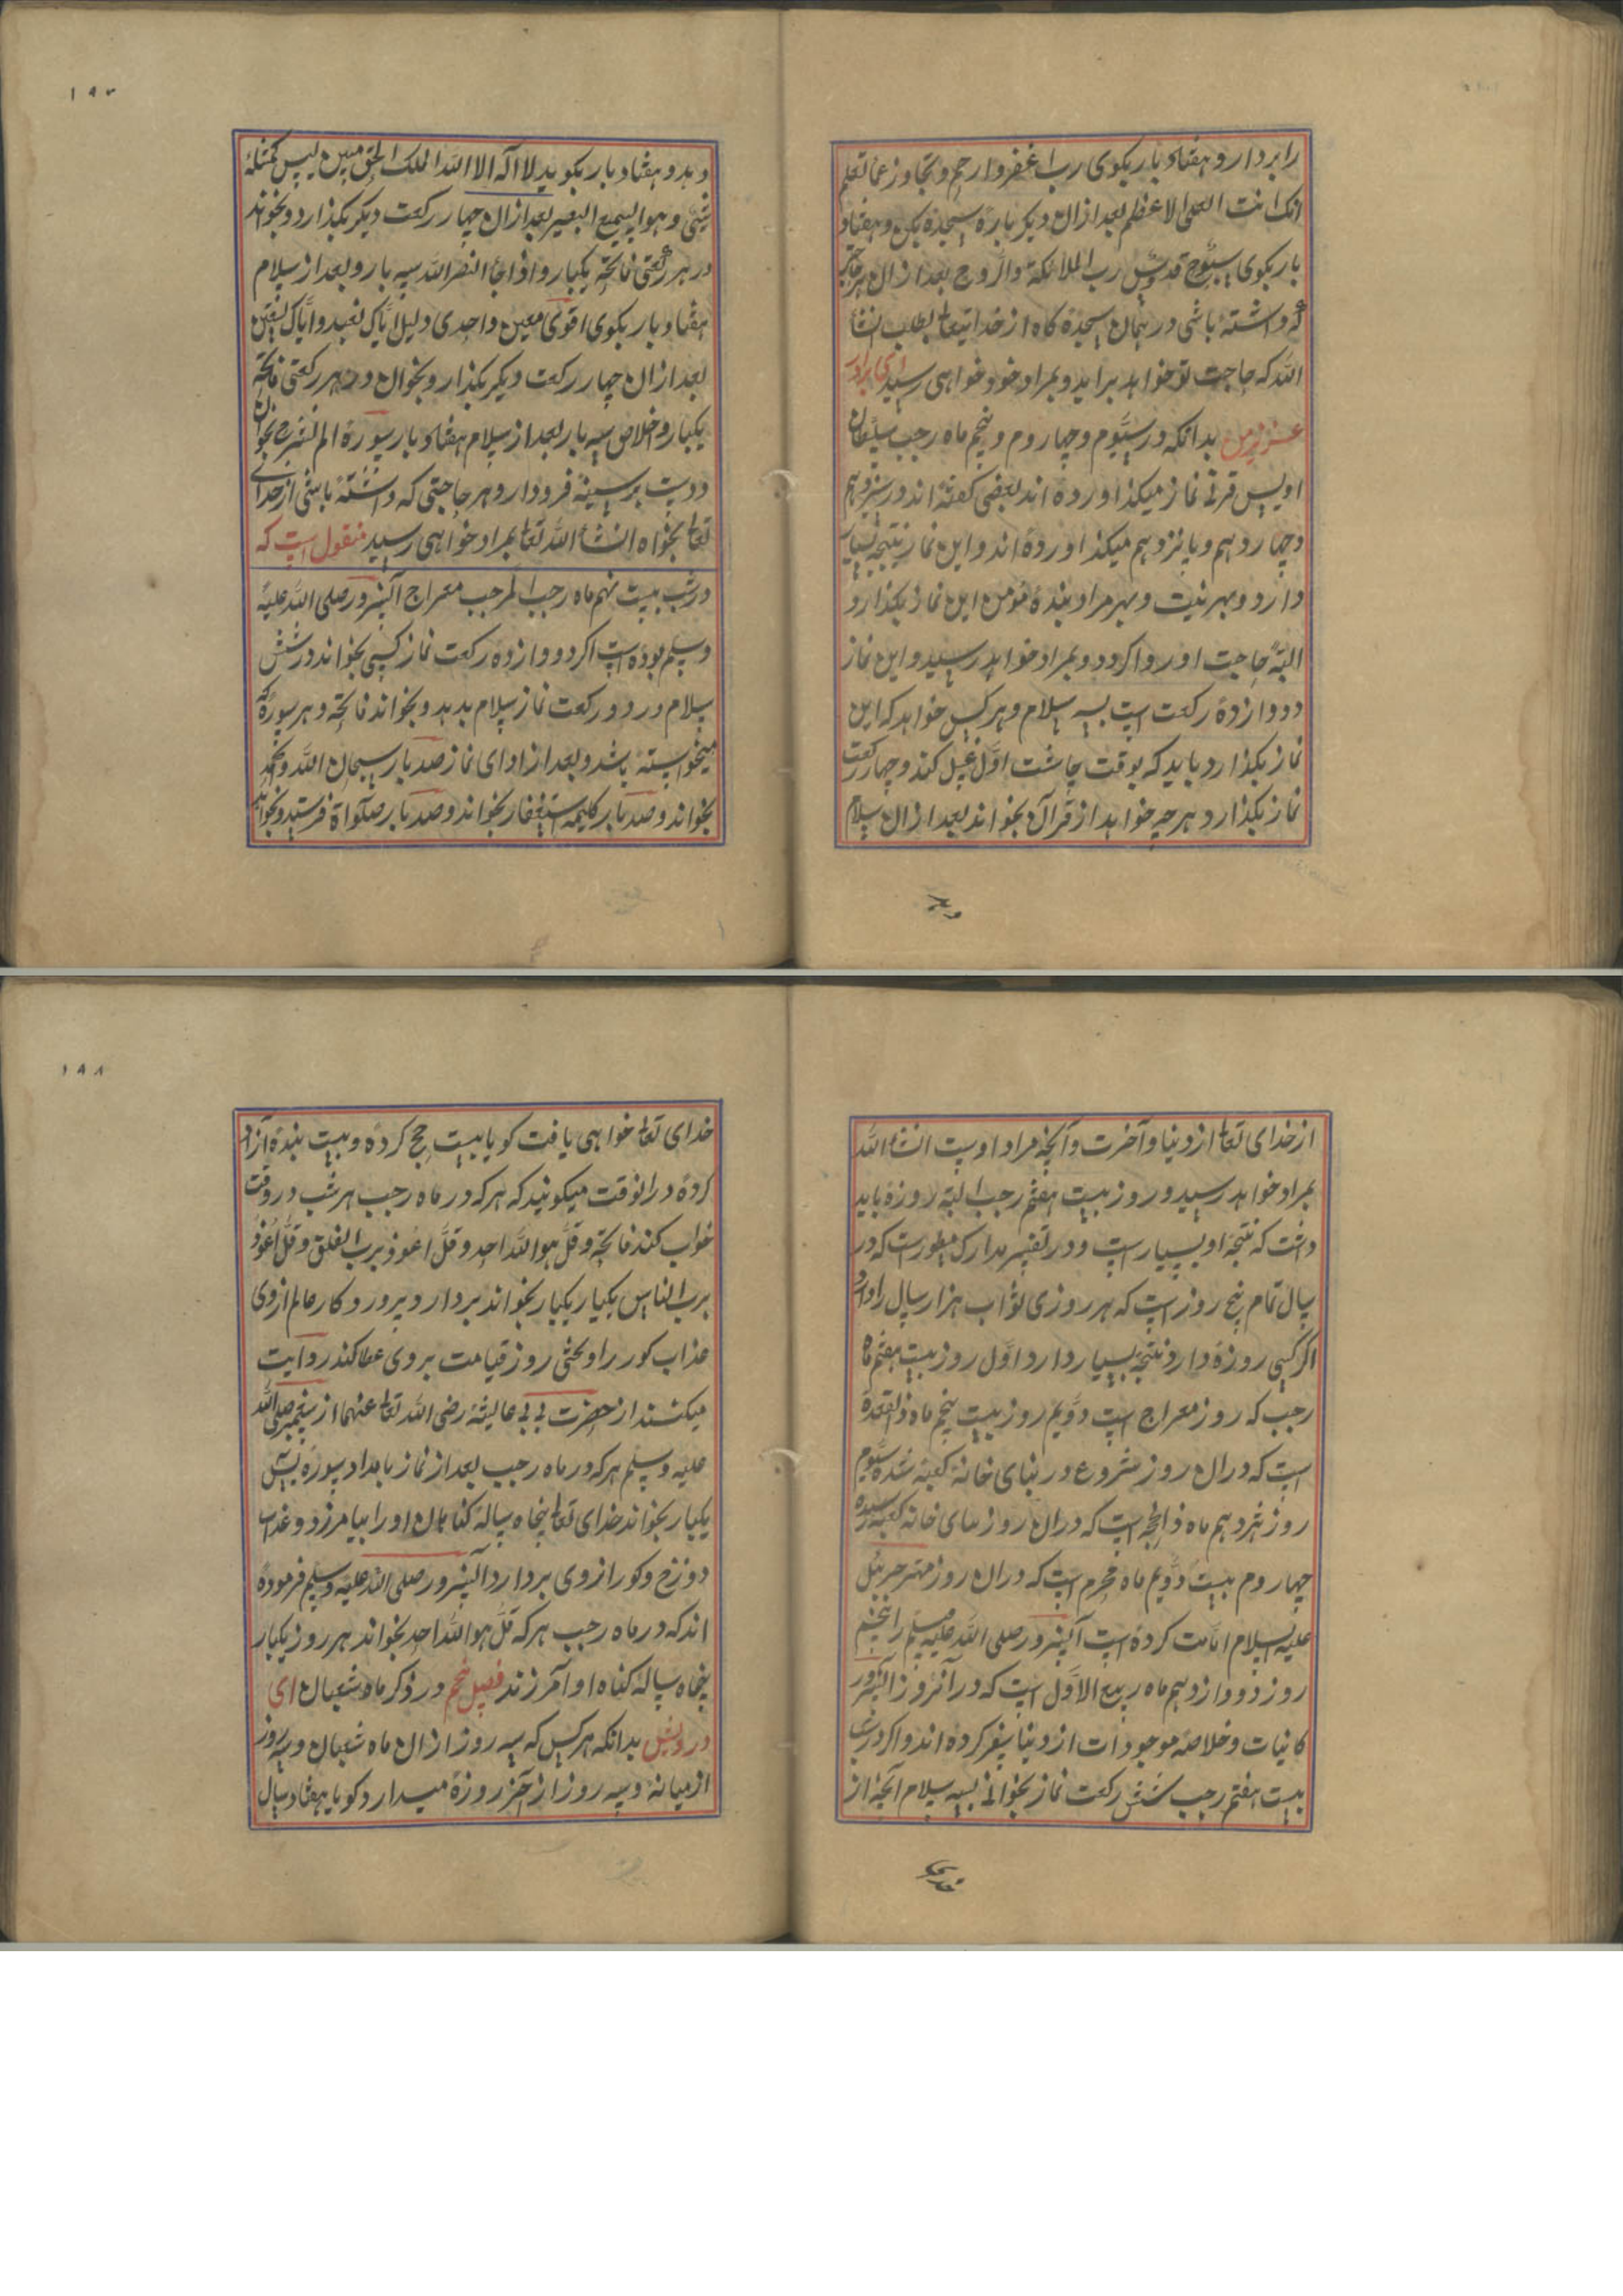 را بردار و هفتاد بار بکوی رب اغفر و ارحم و تجاوز عما تعلم
انک انت العلی الاعظم بعد ازان دیکر باره سجده بکن و هفتاد
بار بکوی سبوح قدوس رب الملائکة والروح بعد ازان هر حاجتی
که داشته باشی در همان سجده کاه از خدایتعالی بطلب انشأ
الله که حاجت تو خواهد برامد و بمراد خود خواهی رسید ای برادر
عزیز من بدانکه در سیوم و چهاروم و پنجم ماه رجب سلطان
اویس قرنی نماز میکذاورده اند بعضی کفته اند در سیزدهم
و چهاردهم و پانزدهم میکذاورده اند و این نماز نتیجه بسیار
دارد و بهر نیت و بهر مراد بنده مومن این نماز بکذارد
البته حاجت او روا کردد و بمراد خواهد رسید و این نماز
دووازده رکعت است بسه سلام و هر کس خواهد که این
نماز بکذارد باید که بوقت چاشت اول غسل کند و چهار رکعت
نماز بکذارد هرچه خواهد از قرآن بخواند بعد ازان سلام
دهد
١٩٧
دهد و هفتاد بار بکوید لا اله الا الله الملک الحق مبین لیس کمثله
شئی و هوا لسمیع البصیر بعد ازان چهار رکعت دیکر بکذارد و بخواند
در هر رکعتی فاتحه یکبار و اذا جأ النصر الله سه بار و بعد از سلام
هفتاد بار بکوی اقوی معین واحدی دلیل ایاک نعبد و ایاک نستعین
بعد ازان چهار رکعت دیکر بکذار و بخوان در هر رکعتی فاتحه
یکبار و اخلاص سه بار بعد از سلام هفتاد بار سورة الم نشرح بخوان
و دست بر سینه فرود ار و هر حاجتی که داشته باشی از خدای
تعالی بخواه انشأ الله تعالی بمراد خواهی رسید منقول است که
در شب بیست نهم ماه رجب المرجب معراج آنسرور صلی الله علیه
وسلم بوده است اکر دووازده رکعت نماز کسی بخواند در شش
سلام در دو رکعت نماز سلام بدهد و بخواند فاتحه و هر سورة که
میخواسته باشد و بعد از ادای نماز صد بار سبحان الله و الحمد
بخواند و صد بار کلیمه استغفار بخواند و صد بار صلواة فرستد و بخواهد
از خدای تعالی از دنیا و آخرت و آنچه مراد اوست انشأ الله
بمراد خواهد رسید و روز بیست هفتم رجب البته روزه باید
داشت که نتیجه او بسیار است و در تفسیر مدارک مسطور است که در
سال تمام پنج روز است که هر روزی ثواب هزار سال را دارد
اکر کسی روزه دارد نتیجه بسیار دارد اول روز بیست هفتم ماه
رجب که روز معراج است دویم روز بیست پنجم ماه ذالقعده
است که دران روز شروع در بنای خانه کعبه شده سیوم
روز هژدهم ماه ذالحجه است که دران روز بنای خانه کعبه رسیده
چهاروم بیست دویم ماه محرم است که دران روز مهتر جبرئیل
علیه السلام امامت کرده است آنسرور صلی الله علیه وسلم را پنجم
روز دووازدهم ماه ربیع الاول است که در آنروز آنسرور
کاینات و خلاصه موجودات از دنیا سفر کرده اند و اکر در شب
بیست هفتم رجب شش رکعت نماز بخوانی بسه سلام آنچه از
خدای
١٩٨
خدای تعالی خواهی یافت کویا بیست حج کرده و بیست بنده آزاد
کرده درانوقت میکویند که هر که در ماه رجب هر شب در وقت
خواب کند فاتحه و قل هو الله احد و قل اعوذ برب الفلق و قل اعوذ
برب الناس یکبار یکبار بخواند بردارد پرورد کار عالم از وی
عذاب کور را و بخشی روز قیامت بر وی عطا کند روایت
میکنند از حضرت بی بی عایشه رضی الله تعالی عنهما از پیغمبر صلی الله
علیه وسلم هر که در ماه رجب بعد از نماز بامداد سورة یس
یکبار بخواند خدای تعالی پنجاه ساله کناهان او را بیامرزد و عذاب
دوزخ و کور از وی بردارد آنسرور صلی الله علیه وسلم فرموده
اند که در ماه رجب هر که قل هو الله احد بخواند هر روز یکبار
پنجاه ساله کناه او آمرزند فصل پنجم در ذکر ماه شعبان ای
درویش بدانکه هر کس که سه روز از ان ماه شعبان و سه روز
از میانه و سه روز از آخر روزه میدارد کویا هفتاد سال